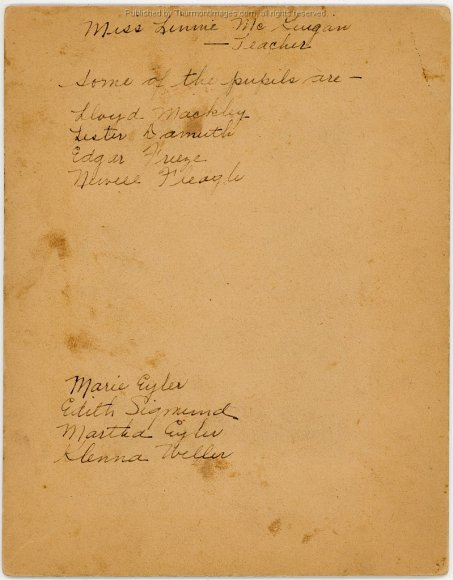 Published by Thurmontimages.com, all rights reserved.
Miss Linnie Mc Guigan
— Teacher
Some of the pupils are —
Lloyd Mackley
Lester Damuth
Edgar Freeze
Fleagle
Marie Eyler
Edith Sigmund
Martha Eyler
Glenna Weller